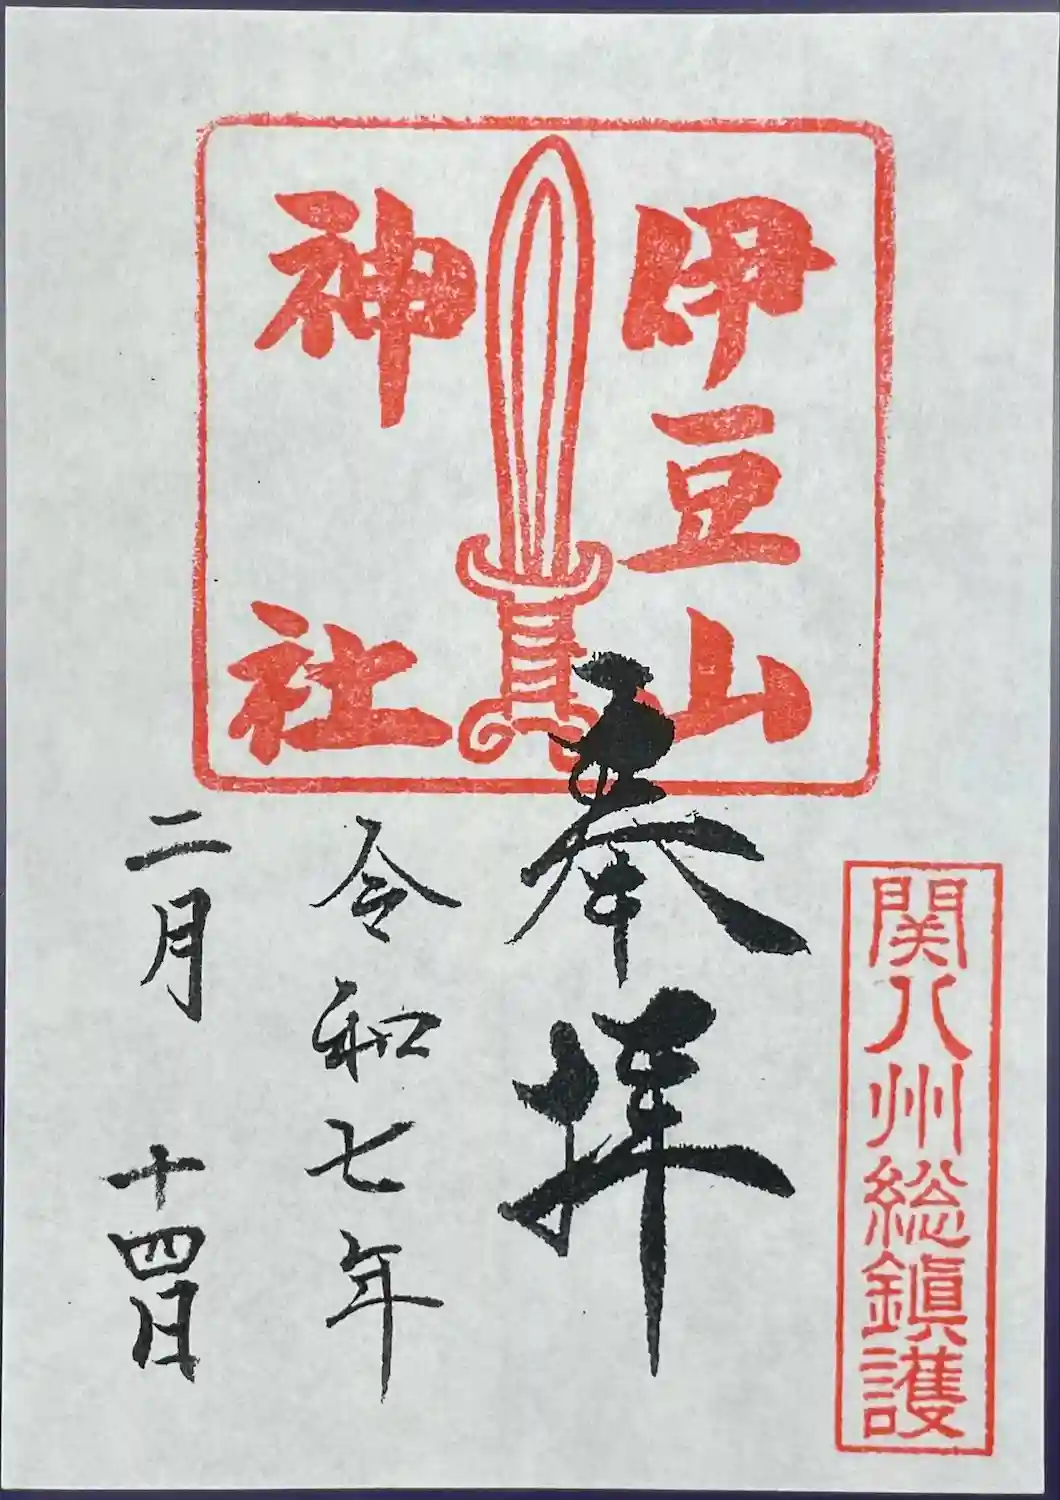 関八州総鎮護
伊豆山
神社
奉拝
令和七年
二月 十四日